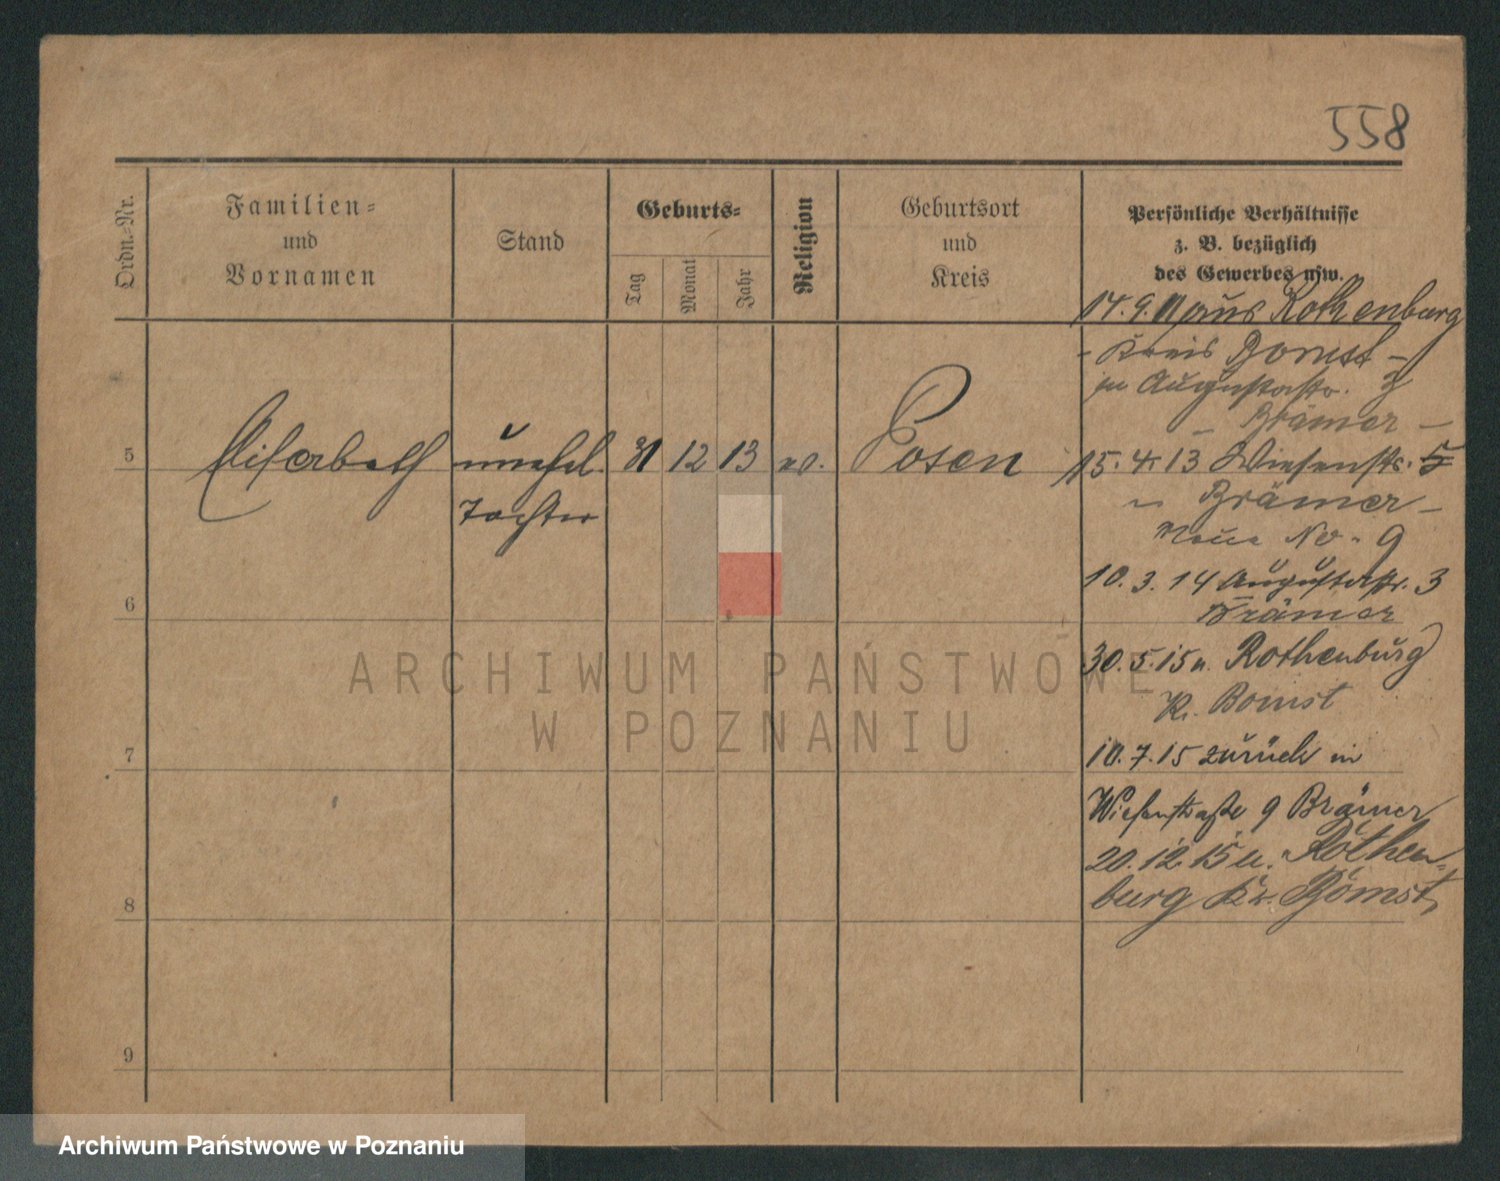 558
Ordn.-Nr.
Familien-
und
Vornamen
Stand
Geburts-
Tag
Monat
Jahr
Religion
Geburtsort
und
Kreis
Persönliche Verhältnisse
z. B. bezüglich
des Gewerbes usw.
14. 9. 11 aus Rothenburg
- Kreis Bomst -
in Augustastr. 3
- Brämer -
5 Elisabeth unehel. 31 12 13 ev. Posen
Tochter
15. 4. 13 Wiesenstr. 5
Brämer -
Neue No. 9
10. 3. 14 Augustastr. 3
Brämer
6
30. 5. 15 n. Rothenburg
Kr. Bomst
7
10. 7. 15 zurück in
Wiesenstraße 9 Brämer
20. 12. 15 n. Rothen-
burg Kr. Bomst
8
9
ARCHIWUM PAŃSTWOWE
W POZNANIU
Archiwum Państwowe w Poznaniu